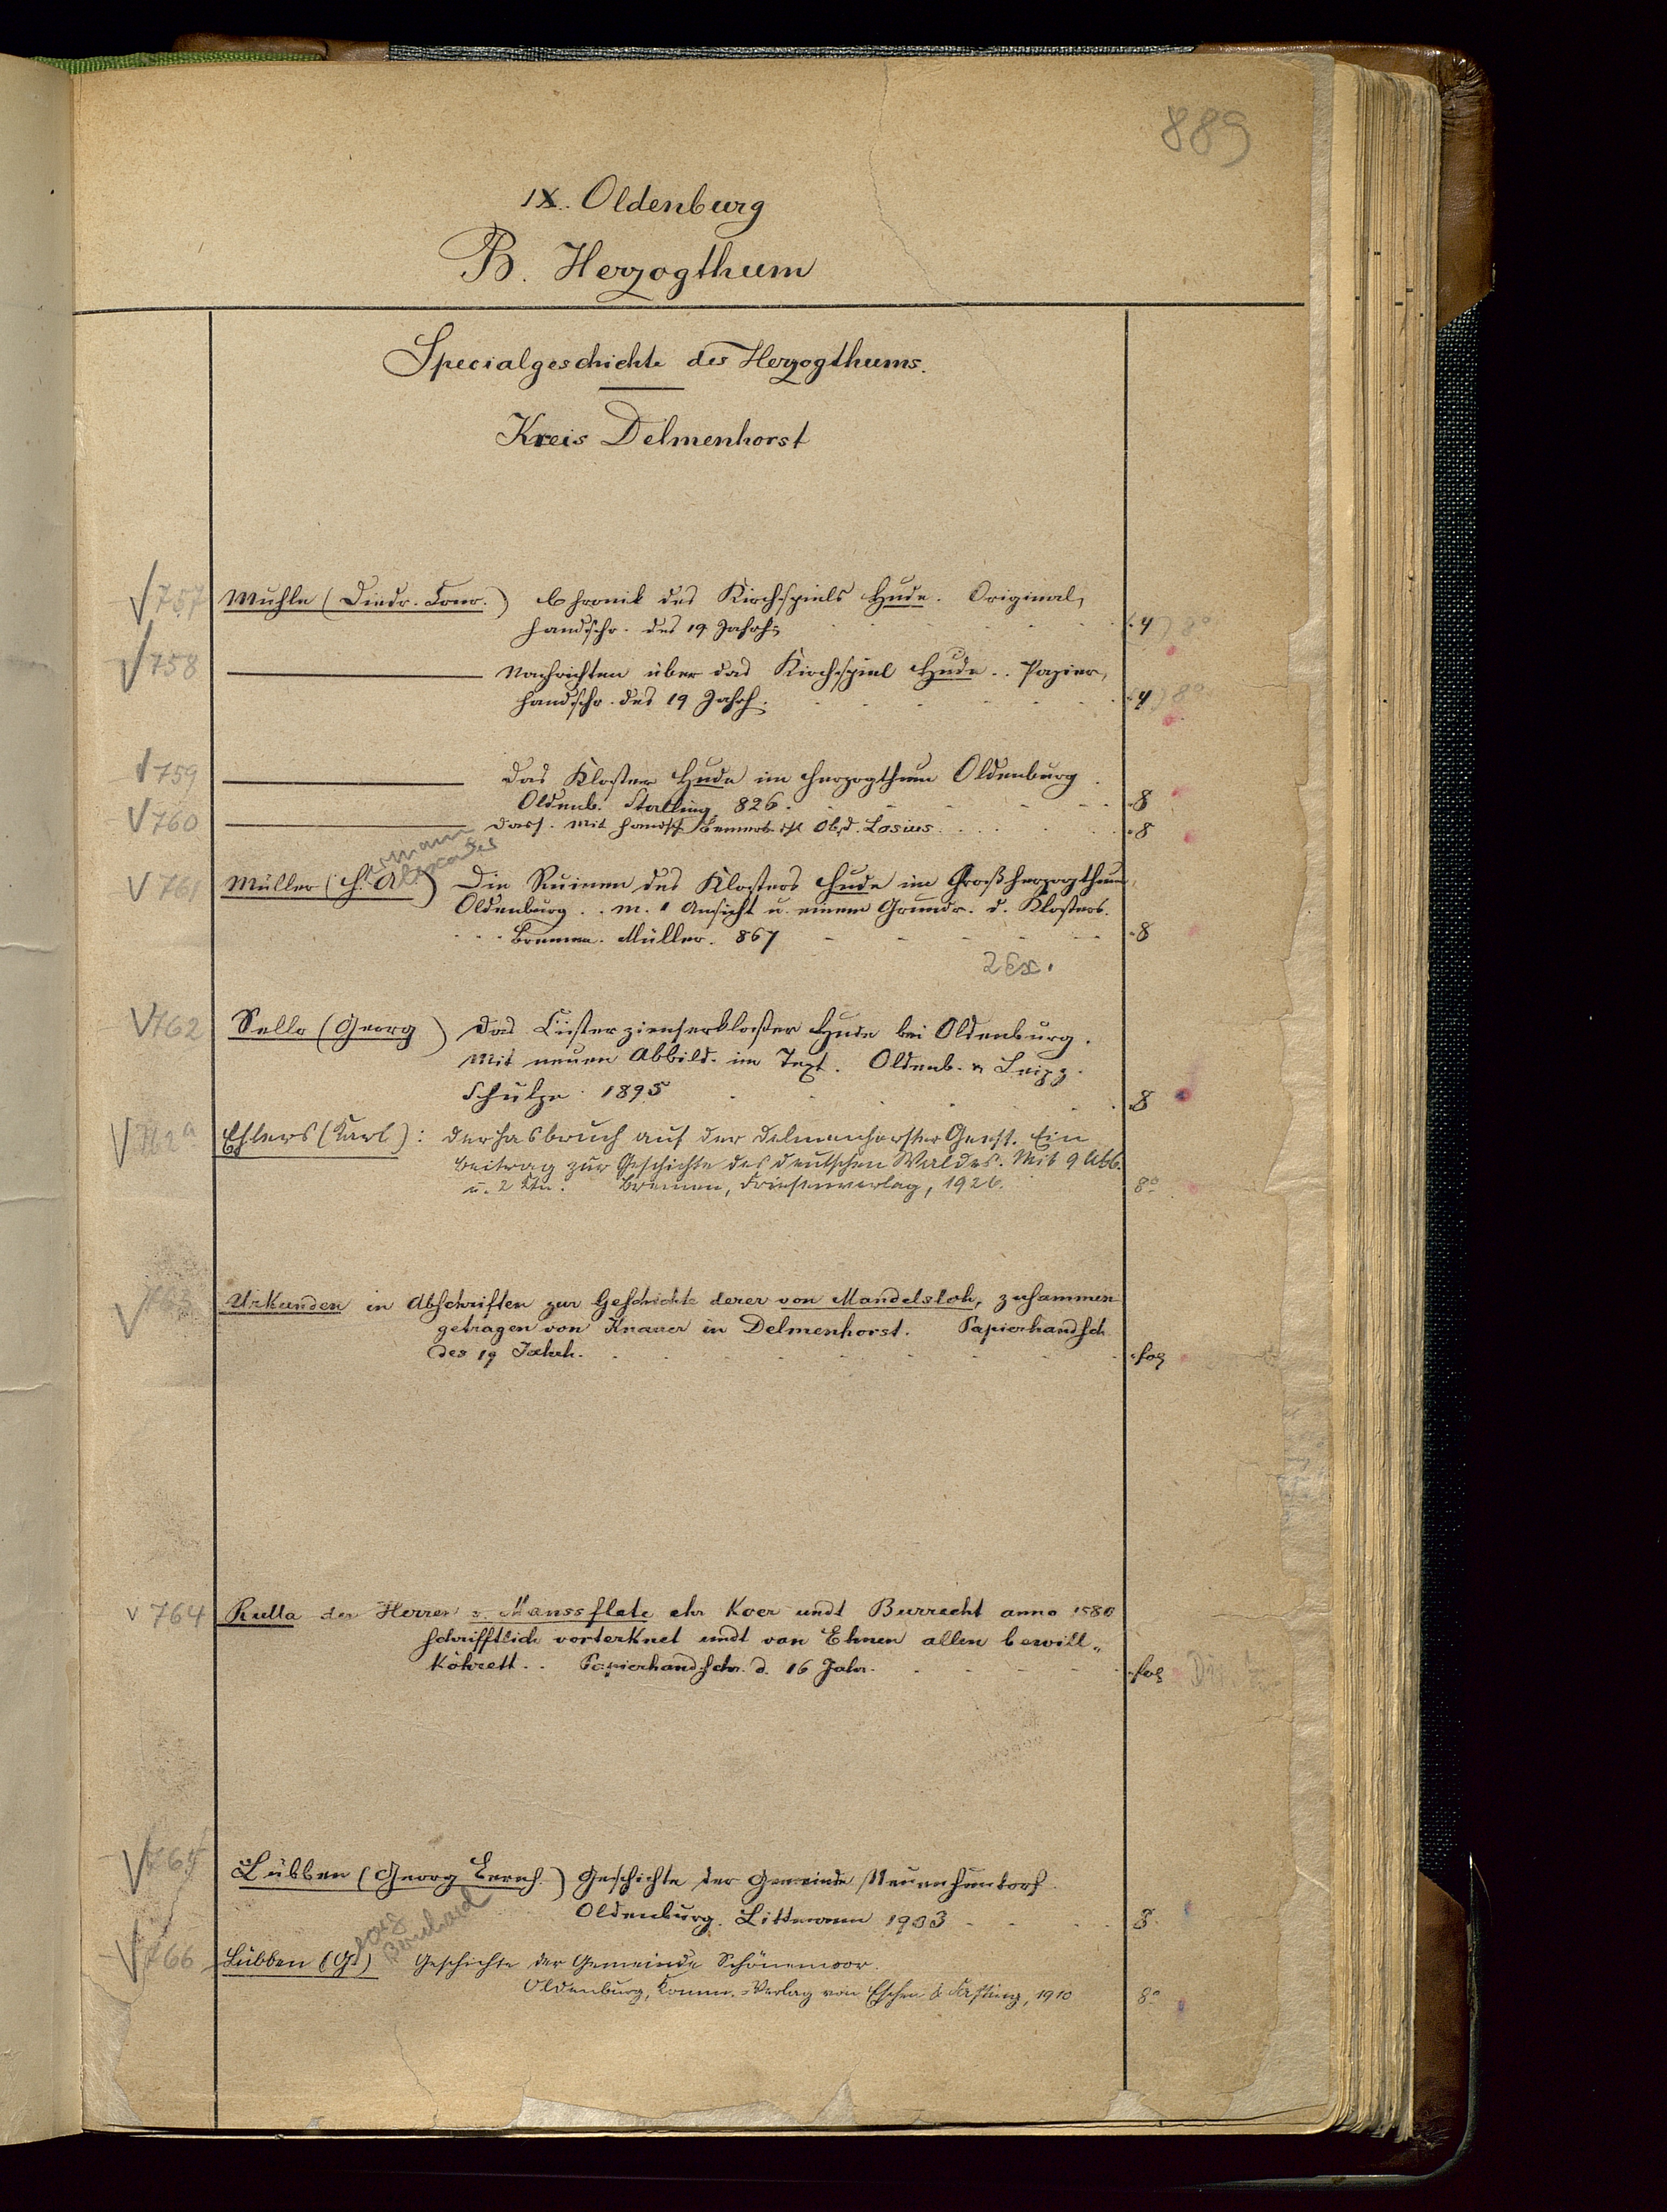 889
IX. Oldenburg
B. Herzogthum
Specialgeschichte des Herzogthums.
Kreis Delmenhorst
757 Muhle (Diedr. Conr.) Chronik des Kirchspiels Hude. Original,
handschr. des 19 Jahrh. 4 8°
758 Nachrichten über das Kirchspiel Hude. Papier,
handschr. des 19 Jahrh. 4 8°
759 Das Kloster Hude im Herzogthum Oldenburg
Oldenb. Stalling 826. 8
760 Dass. Mit handsch Bemerk. Lasius. 8
mann
lexander
761 Müller (H. A.) Die Ruinen des Klosters Hude im Großherzogthum
Oldenburg. m. 1 Ansicht u. einem Grundr. d. Klosters.
Bremen. Müller. 867 8
2 Ex.
762 Sello (Georg) Das Cisterzienserkloster Hude bei Oldenburg.
Mit neuen Abbild. im Text. Oldenb. u Leipz.
Schulze 1895 8
762a Ehlers (Karl): Der Hasbruch auf der Delmenhorster Geest. Ein
Beitrag zur Geschichte des deutschen Waldes. Mit 9 Abb.
u. 2 Ktn. Bremen, Friesenverlag, 1926. 8°
763 Urkunden in Abschriften zur Geschichte derer von Mandelsloh, zusammen
getragen von Knauer in Delmenhorst. Papierhandsch
des 19 Jahrh. fol
764 Rulla der Herren v. Manssflete ehr Koer undt Burrecht anno 1580
schrifftlich vorteknet undt van Ehnen allen bewill-
köhrett. Papierhandschr. d. 16 Jahr. fol
765 Lübben (Georg Bernh.) Geschichte der Gemeinde Neuenhuntorf.
Oldenburg. Littmann 1903 8.
eorg
Bernhard
766 Lübben (G.) Geschichte der Gemeinde Schönemoor.
Oldenburg, Komm.-Verlag von Eschen & Fasting, 1910 8°